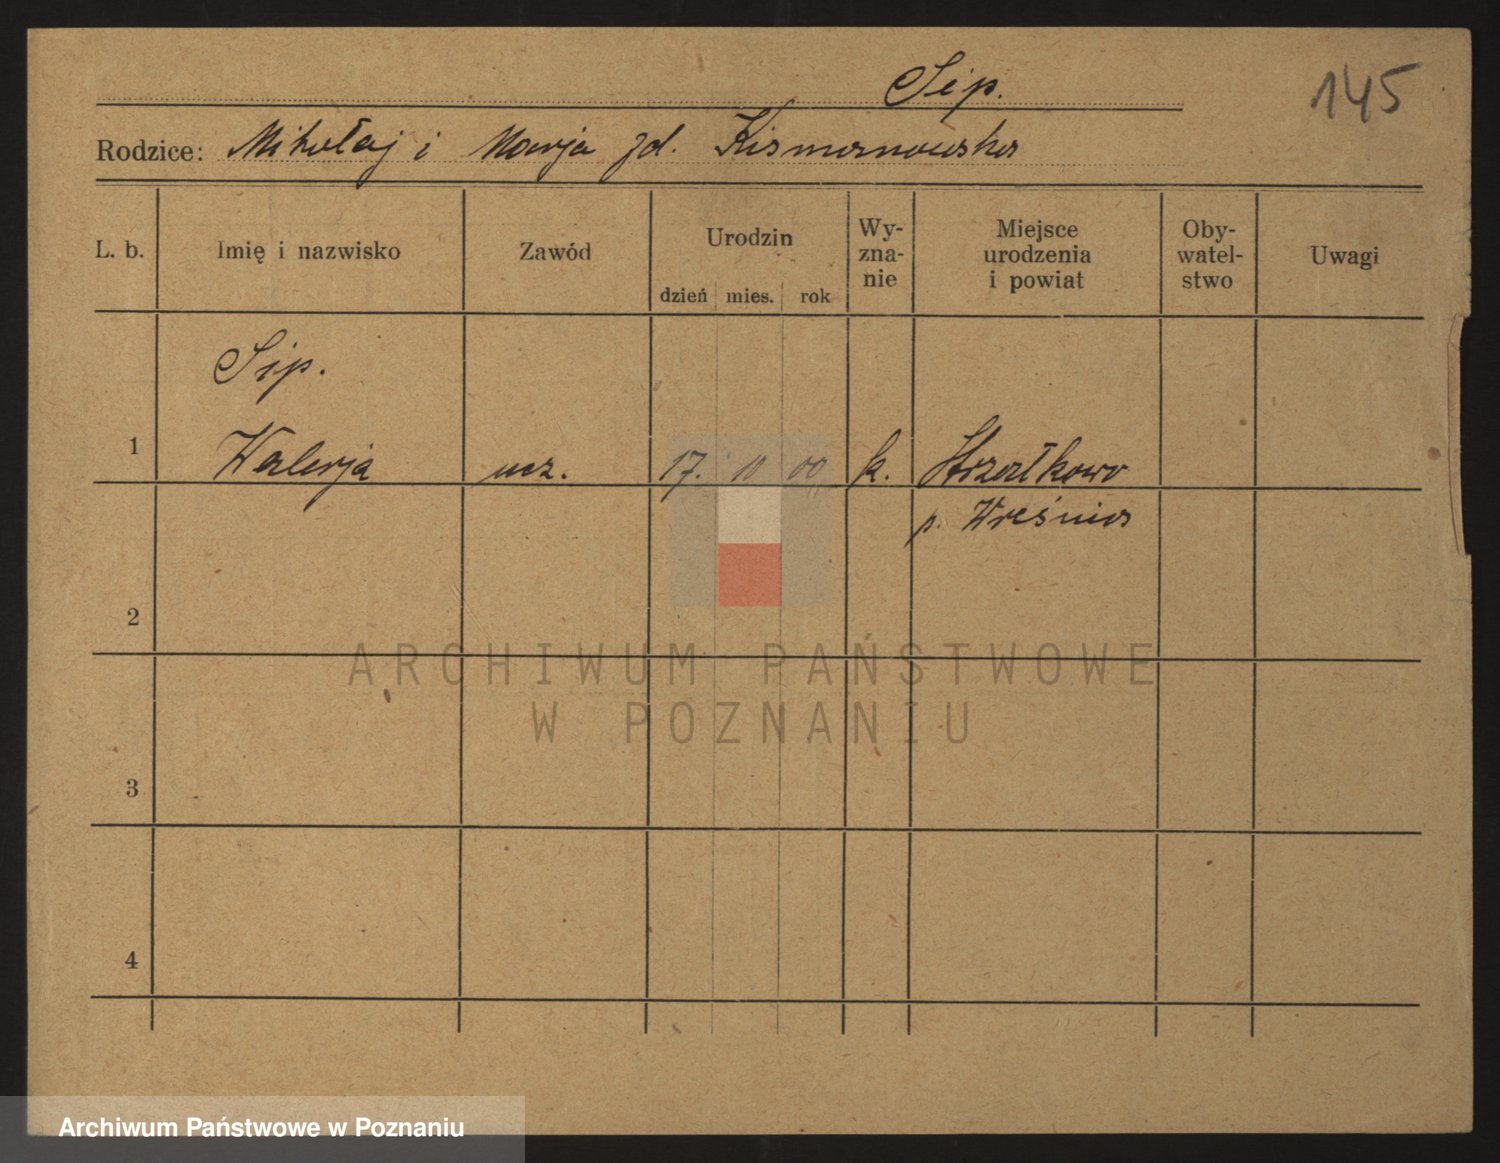 Sip.
145
Rodzice: Mikołaj i Marja zd. Kismanowska
L. b. Imię i nazwisko Zawód Urodzin dzień mies. rok Wy-zna-nie Miejsce urodzenia i powiat Oby-watel-stwo Uwagi
Sip.
1 Walerja ucz. 17. 10 00 k. Strzałkowo
p. Wreśnia
2
ARCHIWUM PAŃSTWOWE
W POZNANIU
3
4
Archiwum Państwowe w Poznaniu